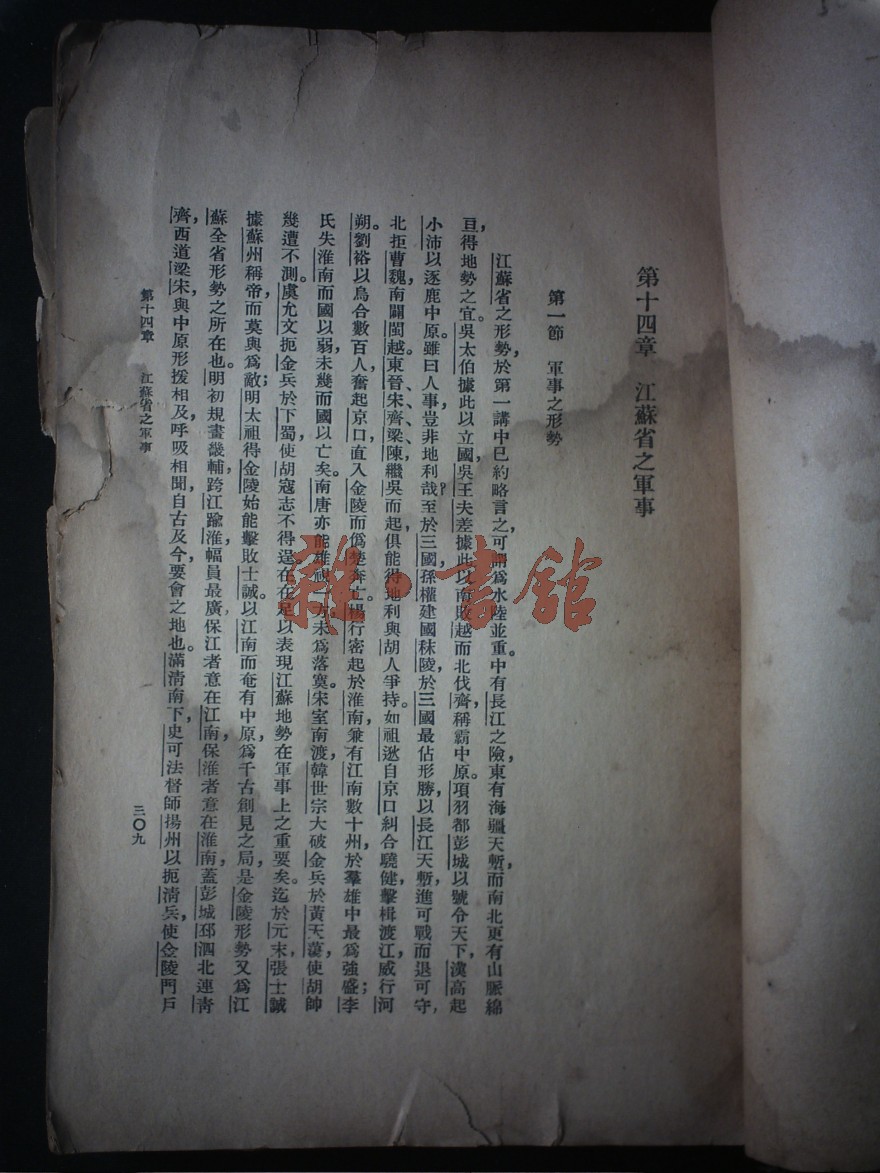 第十四章　江蘇省之軍事
第一節　軍事之形勢
江蘇省之形勢，於第一講中已約略言之，可謂爲水陸並重。中有長江之險，東有海疆天塹，而南北更有山脈綿
亘，得地勢之宜。吳太伯據此以立國，吳王夫差據此以南敗越而北伐齊，稱霸中原。項羽都彭城以號令天下，漢高起
小沛以逐鹿中原。雖曰人事，豈非地利哉？至於三國，孫權建國秣陵，於三國最佔形勝，以長江天塹，進可戰而退可守，
北拒曹魏，南闢閩越。東晉、宋、齊、梁、陳繼吳而起，俱能得地利與胡人爭持。如祖逖自京口糾合驍健，擊楫渡江，威行河
朔。劉裕以烏合數百人，奮起京口，直入金陵，而僞楚奔亡。楊行密起於淮南，兼有江南數十州，於羣雄中最爲強盛；李
氏失淮南而國以弱，未幾而國以亡矣。南唐亦能雄視一方，未爲落寞。宋室南渡，韓世宗大破金兵於黃天蕩，使胡帥
幾遭不測。虞允文扼金兵於下蜀，使胡寇志不得逞，在在足以表現江蘇地勢在軍事上之重要矣。迄於元末，張士誠
據蘇州稱帝而莫與爲敵；明太祖得金陵始能擊敗士誠。以江南而奄有中原，爲千古創見之局，是金陵形勢又爲江
蘇全省形勢之所在也。明初規畫畿輔，跨江踰淮，幅員最廣，保江者意在江南，保淮者意在淮南，蓋彭城邳泗北連青
齊，西道梁宋，與中原形援相及，呼吸相聞，自古及今，要會之地也。滿清南下，史可法督師揚州以扼清兵，使金陵門戶
第十四章　江蘇省之軍事
三〇九
雜·書館